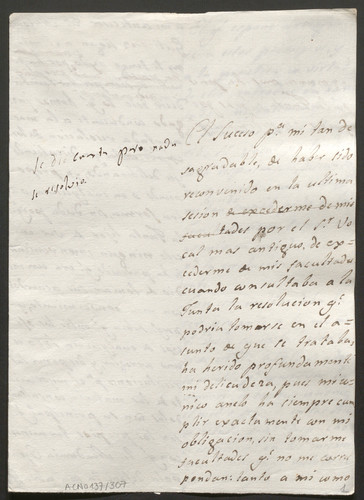 Se dio cuenta pero nada
se resolvio
El suceso pª mi tan de
sagradable, de haber sido
reconvenido en la ultima
sesion de excederme de mis
facultades por el Sr. Vo
cal mas antiguo, de ex=
cederme de mis facultades
cuando consultaba a la
Junta la resolucion qe.
podria tomarse en el a=
sunto de que se trataba,
ha herido profundamente
mi delicadeza, pues mi u=
nico anelo ha siempre cum
plir exactamente con mi
obligacion, sin tomarme
facultades qe. no me corres
pondan: tanto a mi como
ACA0137/307